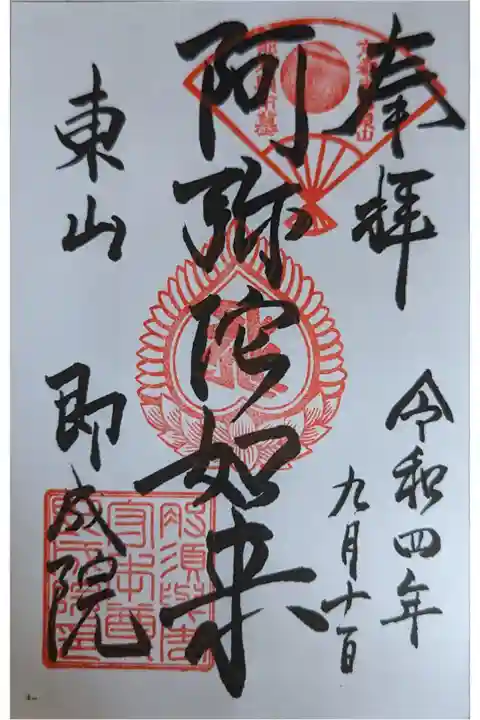 奉拝
令和四年
九月十一日
阿弥陀如来
東山 即成院